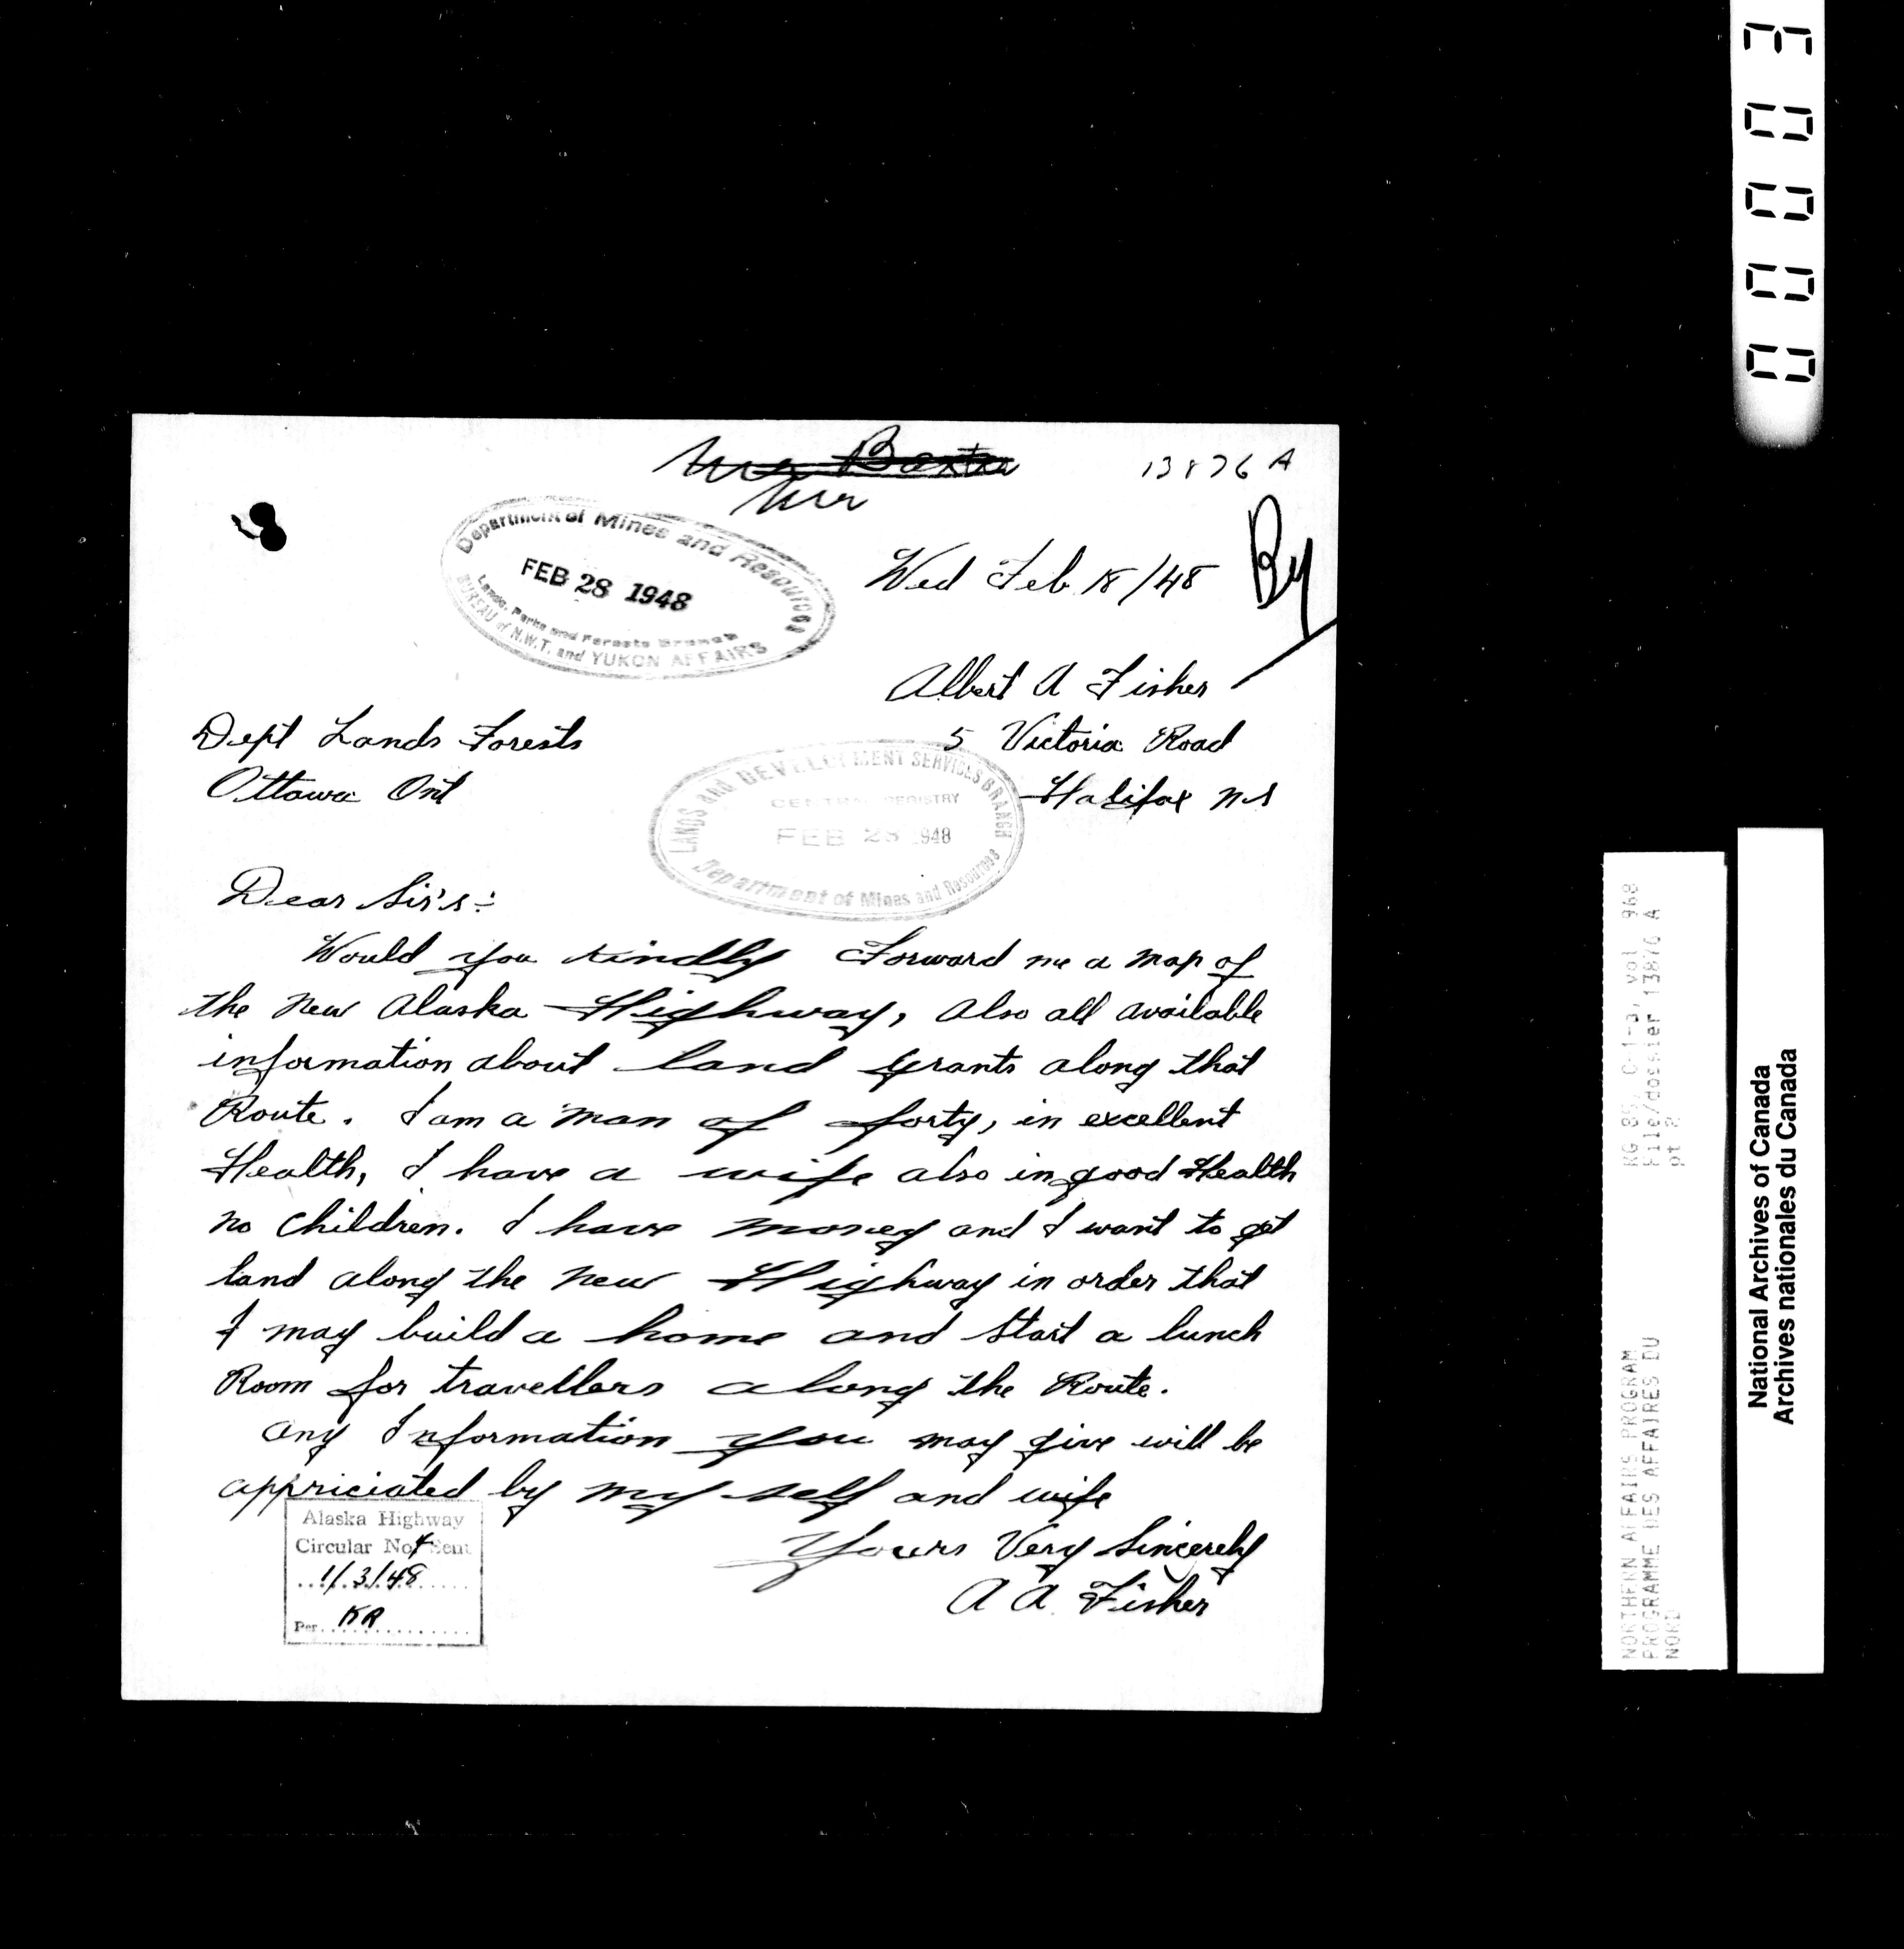 13876 A
Department of Mines and Resources
FEB 28 1948
Lands, Parks and Forests Branch
BUREAU of N.W.T. and YUKON AFFAIRS
Wed Feb 18/48
Albert A Fisher
5 Victoria Road
Halifax NS
Dept Lands Forests
Ottawa Ont
LANDS and DEVELOPMENT SERVICES BRANCH
CENTRAL REGISTRY
FEB 28 1948
Department of Mines and Resources
Dear Sir's:-
Would you kindly Forward me a map of
the new Alaska Highway, Also all available
information about land grants along that
Route. I am a man of forty, in excellent
Health, I have a wife also in good Health
no children. I have money and I want to get
land along the new Highway in order that
I may build a home and start a lunch
Room for travellers along the Route.
Any Information you may give will be
appriciated by my self and wife
Yours Very Sincerely
A A. Fisher
Alaska Highway
Circular No 4 Sent
1/3/48
Per KR
00003
RG 85, C-1-a, vol 968
File/dossier 13876 A
pt 2
NORTHERN AFFAIRS PROGRAM
PROGRAMME DES AFFAIRES DU
NORD
National Archives of Canada
Archives nationales du Canada